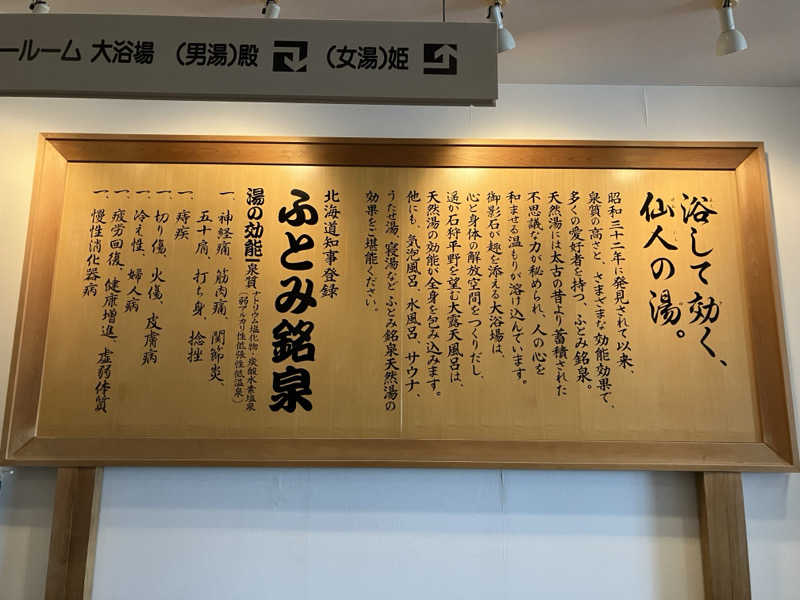 ールーム 大浴場 (男湯)殿 (女湯)姫
浴して効く、
仙人の湯。
昭和三十二年に発見されて以来、
泉質の高さと、さまざまな効能効果で、
多くの愛好者を持つ、ふとみ銘泉。
天然湯には太古の昔より蓄積された
不思議な力が秘められ、人の心を
和ませる温もりが溶け込んでいます。
御影石が趣を添える大浴場は、
心と身体の解放空間をつくりだし、
遥か石狩平野を望む大露天風呂は、
天然湯の効能が全身を包み込みます。
他にも、気泡風呂、水風呂、サウナ、
うたせ湯、寝湯など ふとみ銘泉天然湯の
効果をご堪能ください。
北海道知事登録
ふとみ銘泉
湯の効能 泉質 ナトリウム塩化物・炭酸水素塩泉
(弱アルカリ性低張性低温泉)
一、神経痛、筋肉痛、関節炎
五十肩、打ち身、捻挫
一、痔疾
一、切り傷、火傷、皮膚病
一、冷え性、婦人病
一、疲労回復、健康増進、虚弱体質
一、慢性消化器病